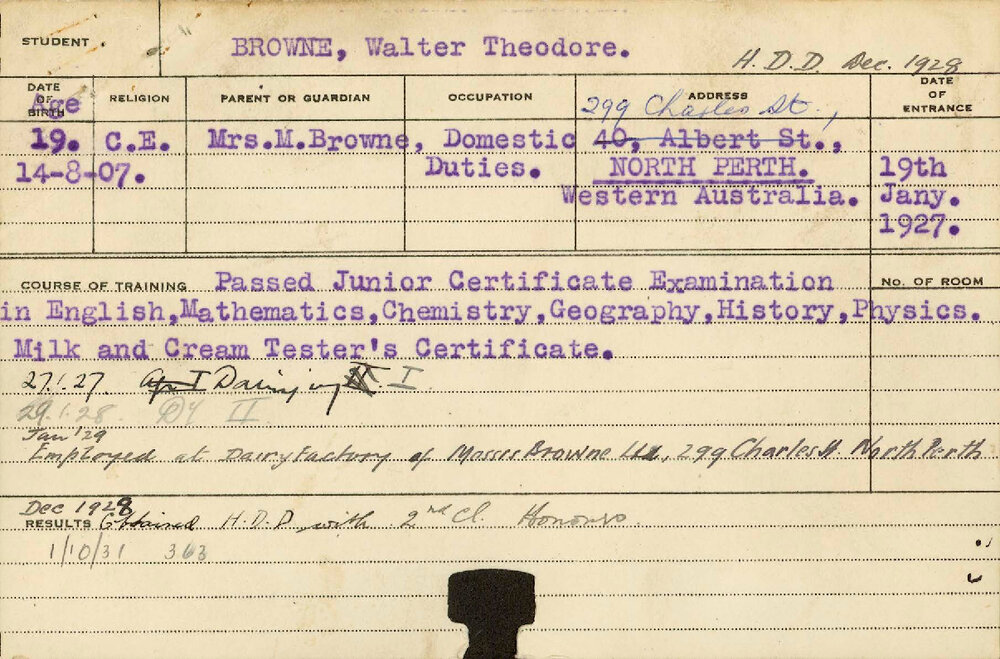 STUDENT. BROWNE, Walter Theodore.
H.D.D. Dec. 1928
DATE OF BIRTH Age RELIGION PARENT OR GUARDIAN OCCUPATION ADDRESS DATE OF ENTRANCE
299 Charles St.,
19. C.E. Mrs.M.Browne, Domestic 40, Albert St.,
14-8-07. Duties. NORTH PERTH. 19th
Western Australia. Jany.
1927.
COURSE OF TRAINING Passed Junior Certificate Examination No. OF ROOM
in English,Mathematics,Chemistry,Geography,History,Physics.
Milk and Cream Tester's Certificate.
27.1.27. I Dairying I
29.1.28. Dy II
Jan '29
Employed at Dairy Factory of Messrs Browne Ltd, 299 Charles St. North Perth
Dec 1928
RESULTS Obtained H.D.D. with 2nd Cl. Honours.
1/10/31 363